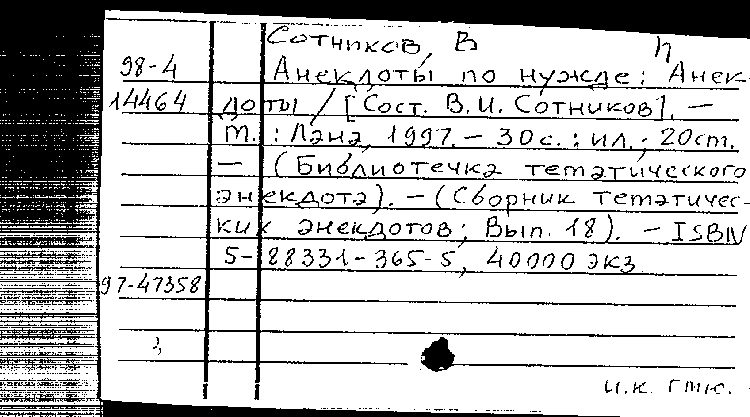 Сотников, В
98-4 Анекдоты по нужде: Анек-
14464 доты / [Сост. В.И. Сотников]. —
М. : Лана, 1997. – 30 с. : ил.; 20 см.
— (Библиотечка тематического
анекдота). – (Сборник тематичес-
ких анекдотов; Вып. 18). – ISBN
5-88331-365-5, 40000 экз
97-47358